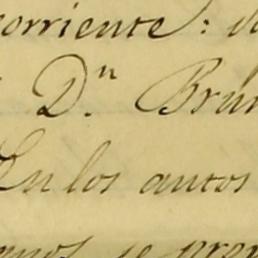 corriente:
Dn Brun
En los autos
se